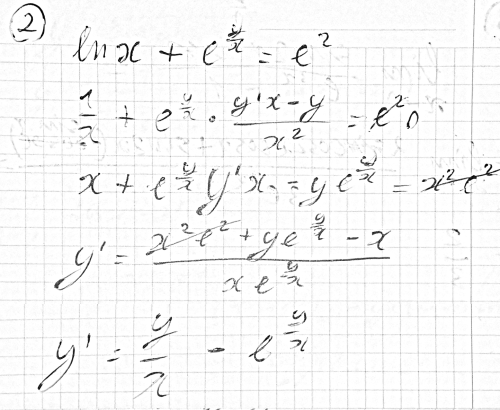 ②
ln x + e^{y/x} = e^2
1/x + e^{y/x} · (y'x - y)/x^2 = e^2 0
x + e^{y/x} y'x - = y e^{y/x} = x^2 e^2
y' = (x^2 e^2 + y e^{y/x} - x)/(x e^{y/x})
y' = y/x - e^{y/x}